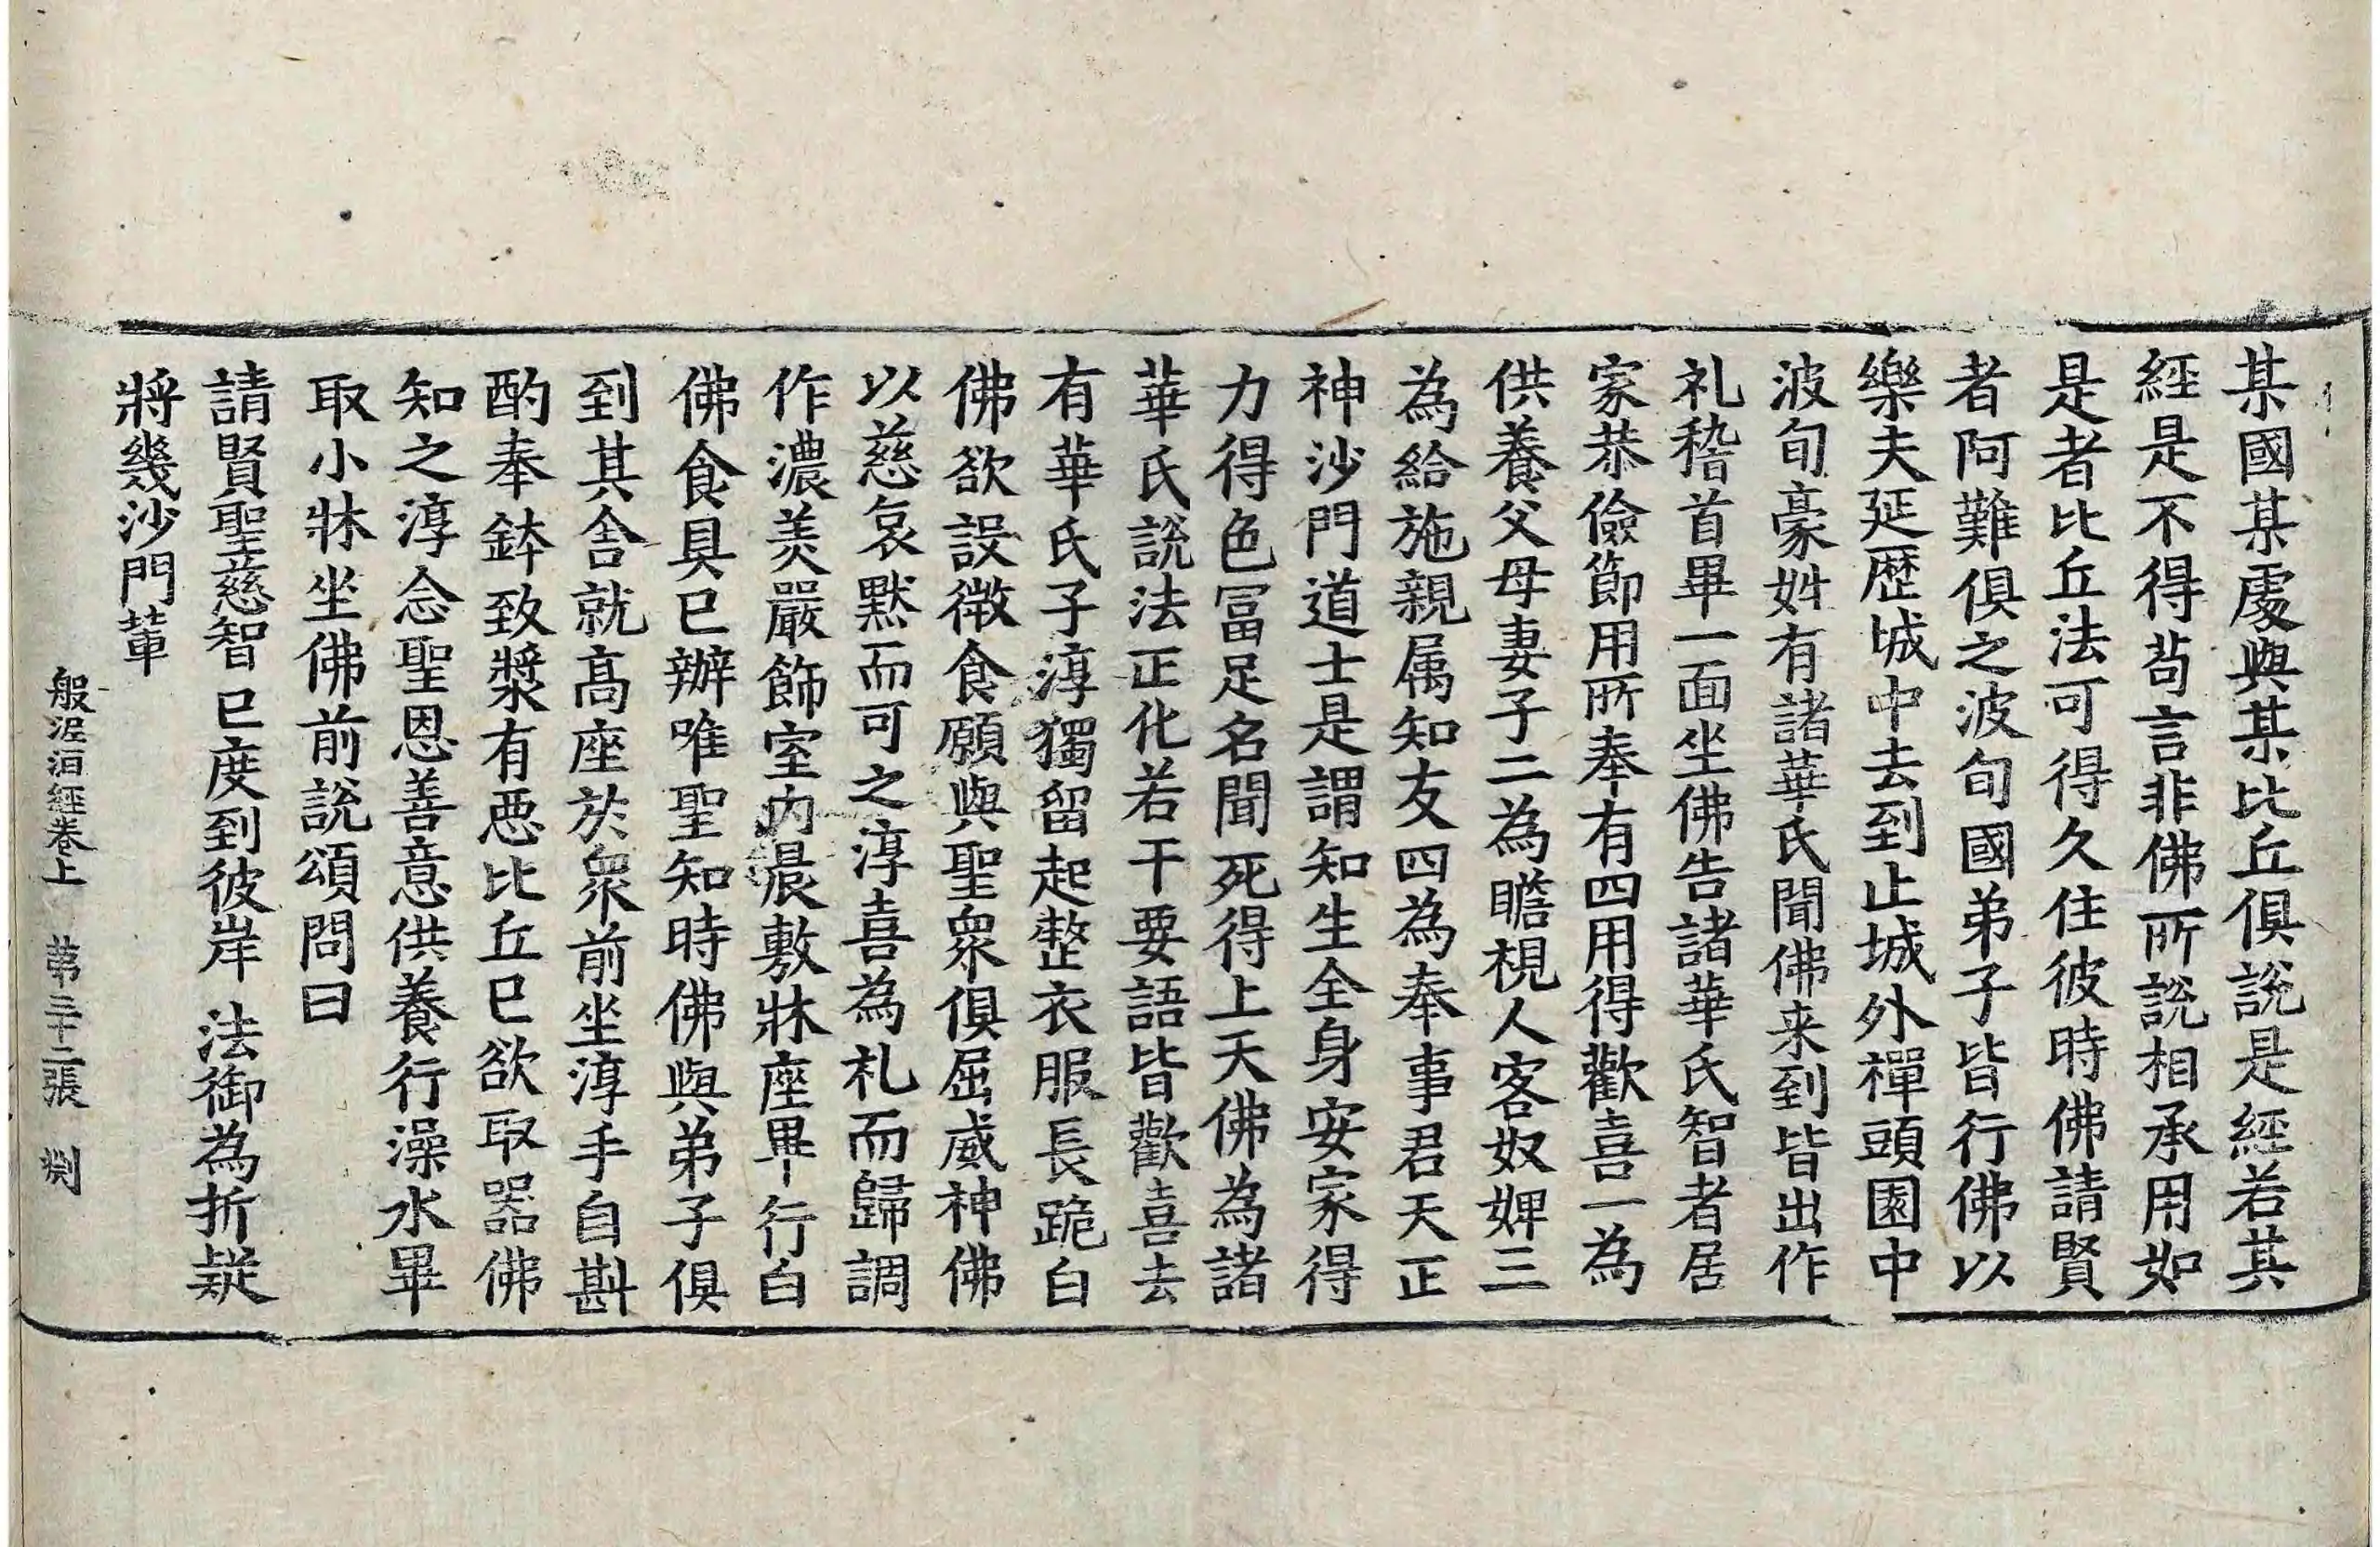 某國某處與某比丘俱說是經若其
經是不得苟言非佛所說相承用如
是者比丘法可得久住彼時佛請賢
者阿難俱之波旬國弟子皆行佛以
樂夫延歴城中去到止城外禪頭園中
波旬豪姓有諸華氏聞佛来到皆出作
礼稽首畢一面坐佛告諸華氏智者居
家恭儉節用所奉有四用得歡喜一為
供養父母妻子二為瞻視人客奴婢三
為給施親属知友四為奉事君天正
神沙門道士是謂知生全身安家得
力得色冨足名聞死得上天佛為諸
華氏說法正化若干要語皆歡喜去
有華氏子淳獨留起整衣服長跪白
佛欲設微食願與聖衆俱屈威神佛
以慈哀黙而可之淳喜為礼而歸調
作濃美嚴飾室内晨敷牀座畢行白
佛食具已辦唯聖知時佛與弟子俱
到其舍就高座於衆前坐淳手自斟
酌奉鉢致漿有悪比丘已欲取器佛
知之淳念聖恩善意供養行澡水畢
取小牀坐佛前說頌問曰
請賢聖慈智已度到彼岸 法御為折疑
將幾沙門軰
般泥洹經卷上 第三十二張 渕